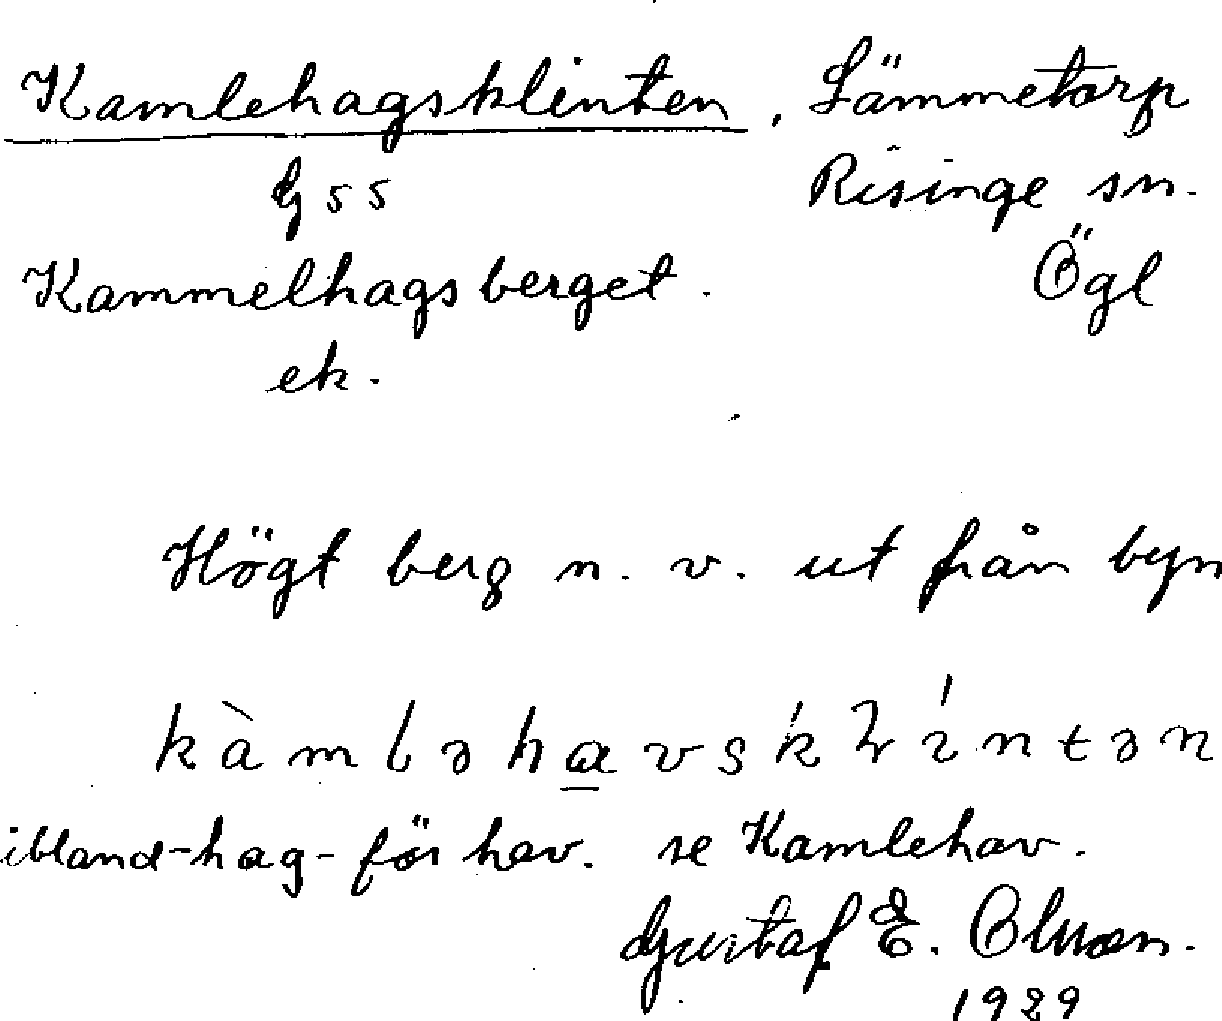 Kamlehagsklinten, Lämmetorp
G 55 Risinge sn.
Kammelhagsberget. Ögl
ek.
Högt berg n. v. ut från byn
ibland-hag-för hav. se Kamlehav.
Gustaf E.
1929